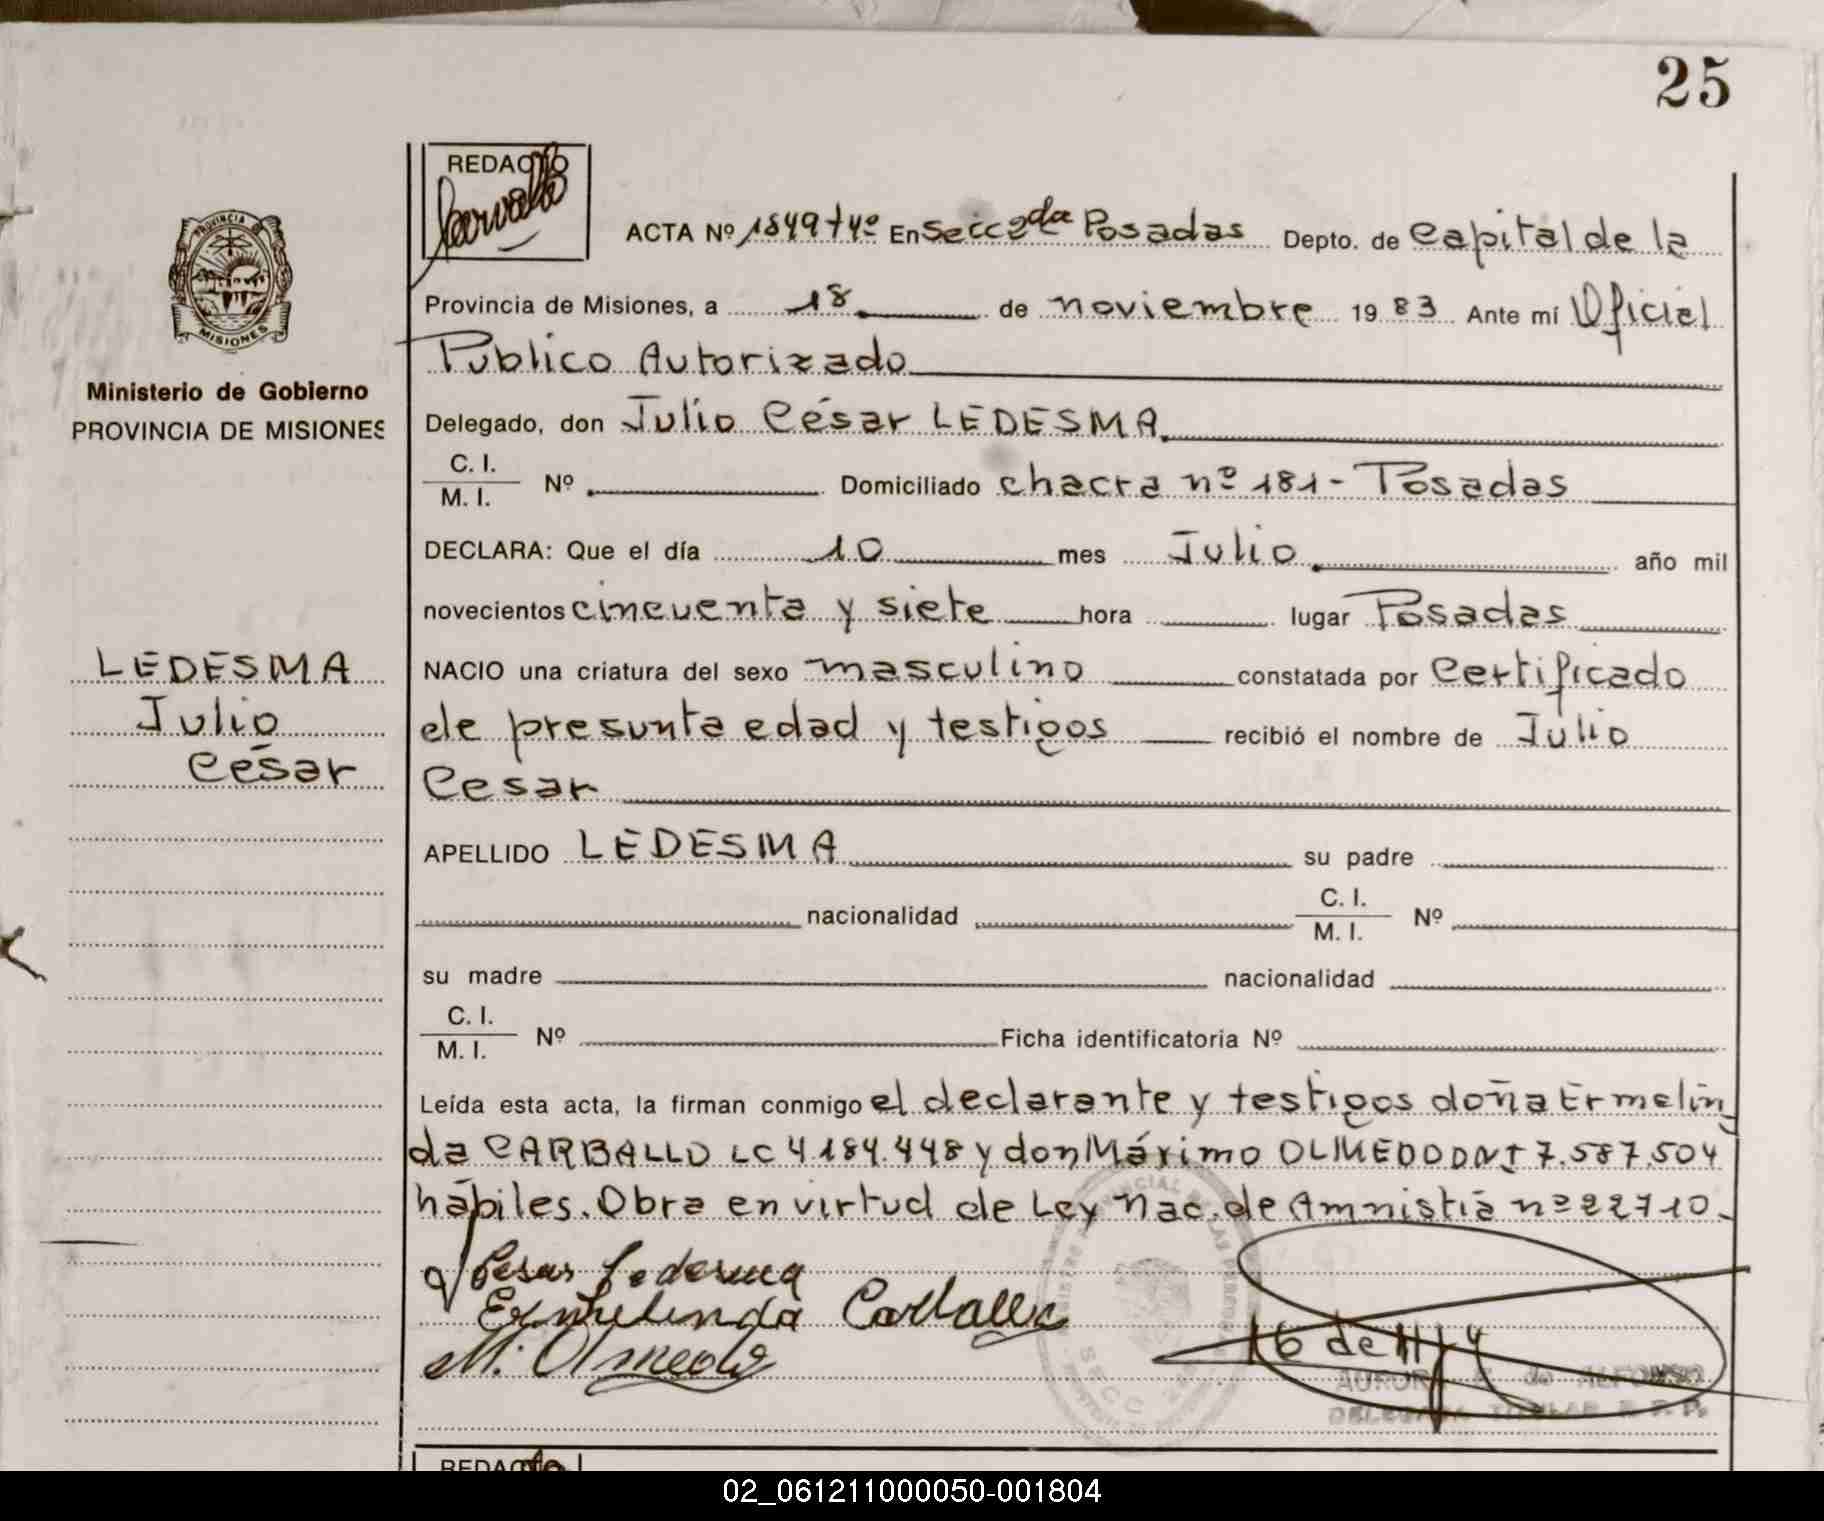 25
REDACTO
Carvallo
ACTA Nº 1849 t4º En Secc 2da Posadas Depto. de Capital de la
PROVINCIA
MISIONES
Provincia de Misiones, a 18 de noviembre 1983 Ante mí Oficial
Publico Autorizado
Ministerio de Gobierno
PROVINCIA DE MISIONES
Delegado, don Julio César LEDESMA
C. I.
M. I. Nº Domiciliado chacra nº 181 - Posadas
DECLARA: Que el día 10 mes Julio año mil
novecientos cincuenta y siete hora lugar Posadas
LEDESMA
Julio
César
NACIO una criatura del sexo masculino constatada por Certificado
de presunta edad y testigos recibió el nombre de Julio
Cesar
APELLIDO LEDESMA su padre
nacionalidad C. I.
M. I. Nº
su madre nacionalidad
C. I.
M. I. Nº Ficha identificatoria Nº
Leída esta acta, la firman conmigo el declarante y testigos doña Ermelin
da CARBALLO LC 4.184.448 y don Máximo OLMEDO DNI 7.587.504
hábiles. Obra en virtud de Ley Nac. de Amnistia nº 22710.
Cesar Ledesma
Ermelinda Carballo
M. Olmedo
SECC 2
AURORA de ALFONSO
DELEGADA TITULAR R. P. P.
REDACTO
02_061211000050-001804